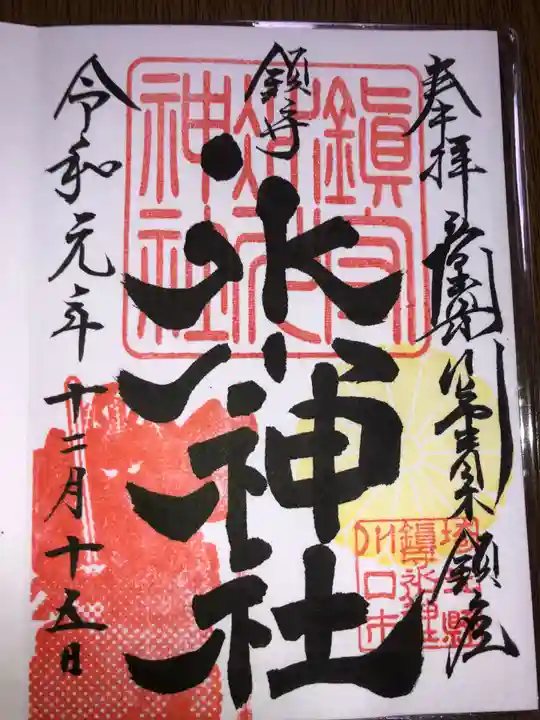 奉拝
鎮守
氷川神社
令和元年十二月十五日
鎮守
氷川
神社
埼玉縣
鎮守氷川神社
川口市